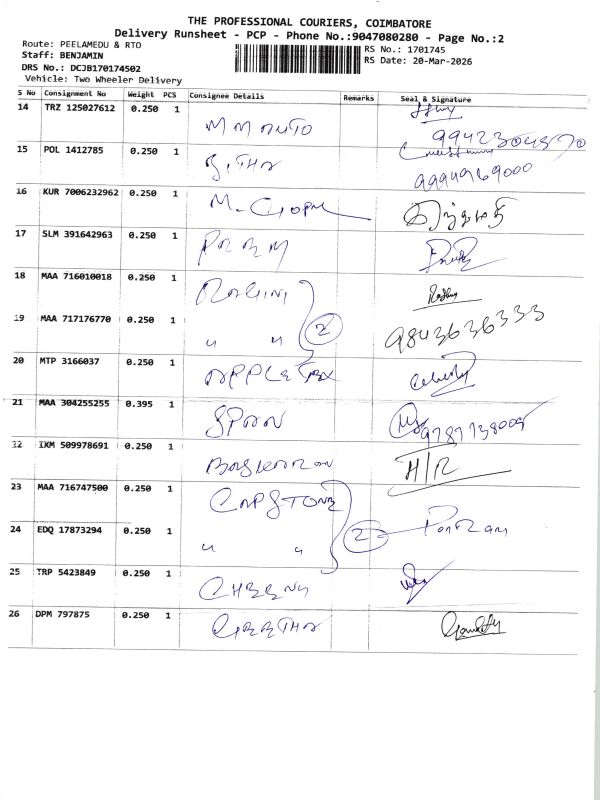 THE PROFESSIONAL COURIERS, COIMBATORE
Delivery Runsheet - PCP - Phone No.:9047080280 - Page No.:2
Route: PEELAMEDU & RTO
Staff: BENJAMIN
DRS No.: DCJB170174502
Vehicle: Two Wheeler Delivery
RS No.: 1701745
RS Date: 20-Mar-2026
S No Consignment No Weight PCS Consignee Details Remarks Seal & Signature
14 TRZ 125027612 0.250 1 MM AUTO
15 POL 1412785 0.250 1 9994969000
16 KUR 7006232962 0.250 1
17 SLM 391642963 0.250 1
18 MAA 716010018 0.250 1 ROHINI
19 MAA 717176770 0.250 1 " " 2 9843636333
20 MTP 3166037 0.250 1 APPLE
21 MAA 304255255 0.395 1 SPAN
22 IXM 509978691 0.250 1 H/R
23 MAA 716747500 0.250 1 CAPSTONE
24 EDQ 17873294 0.250 1 " " 2
25 TRP 5423849 0.250 1
26 DPM 797875 0.250 1 GEETHA